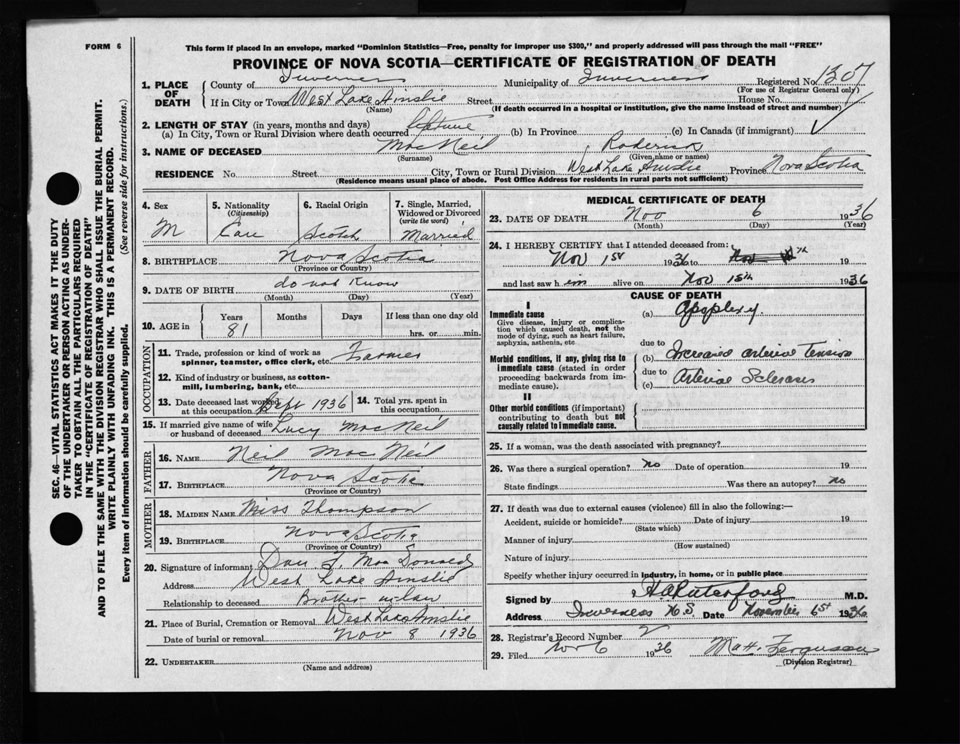 FORM 6
This form if placed in an envelope, marked "Dominion Statistics—Free, penalty for improper use $300," and properly addressed will pass through the mail "FREE"
PROVINCE OF NOVA SCOTIA—CERTIFICATE OF REGISTRATION OF DEATH
1. PLACE OF DEATH County of Inverness Municipality of Inverness Registered No. 1307
(For use of Registrar General only)
If in City or Town West Lake Ainslie Street House No.
(Name) (If death occurred in a hospital or institution, give the name instead of street and number)
2. LENGTH OF STAY (in years, months and days)
(a) In City, Town or Rural Division where death occurred lifetime (b) In Province (c) In Canada (if immigrant)
3. NAME OF DECEASED MacNeil Roderick
(Surname) (Given name or names)
RESIDENCE No. Street City, Town or Rural Division West Lake Ainslie Province Nova Scotia
(Residence means usual place of abode. Post Office Address for residents in rural parts not sufficient)
SEC. 46—VITAL STATISTICS ACT MAKES IT THE DUTY
OF THE UNDERTAKER OR PERSON ACTING AS UNDER-
TAKER TO OBTAIN ALL THE PARTICULARS REQUIRED
IN THE "CERTIFICATE OF REGISTRATION OF DEATH"
AND TO FILE THE SAME WITH THE DIVISION REGISTRAR WHO SHALL ISSUE THE BURIAL PERMIT.
WRITE PLAINLY WITH UNFADING INK. THIS IS A PERMANENT RECORD.
Every item of information should be carefully supplied. (See reverse side for instructions.)
4. Sex M
5. Nationality (Citizenship) Can
6. Racial Origin Scotch
7. Single, Married, Widowed or Divorced (write the word) Married
8. BIRTHPLACE Nova Scotia
(Province or Country)
9. DATE OF BIRTH do not know
(Month) (Day) (Year)
10. AGE in Years 81 Months Days If less than one day old hrs. or min.
OCCUPATION
11. Trade, profession or kind of work as spinner, teamster, office clerk, etc. Farmer
12. Kind of industry or business, as cotton-mill, lumbering, bank, etc.
13. Date deceased last worked at this occupation Sept 1936 14. Total yrs. spent in this occupation
15. If married give name of wife or husband of deceased Lucy MacNeil
FATHER
16. NAME Neil MacNeil
17. BIRTHPLACE Nova Scotia
(Province or Country)
MOTHER
18. MAIDEN NAME Miss Thompson
19. BIRTHPLACE Nova Scotia
(Province or Country)
20. Signature of informant Dan J. MacDonald
Address West Lake Ainslie
Relationship to deceased Brother-inlaw
21. Place of Burial, Cremation or Removal West Lake Ainslie
Date of burial or removal Nov 8 1936
22. UNDERTAKER
(Name and address)
MEDICAL CERTIFICATE OF DEATH
23. DATE OF DEATH Nov 6 1936
(Month) (Day) (Year)
24. I HEREBY CERTIFY that I attended deceased from:
Nov 1st 1936 to 19
and last saw him alive on Nov 1936
CAUSE OF DEATH
I
Immediate cause
Give disease, injury or complication which caused death, not the mode of dying, such as heart failure, asphyxia, asthenia, etc
(a) Apoplexy
due to
Morbid conditions, if any, giving rise to immediate cause (stated in order proceeding backwards from immediate cause).
(b) Increased Arterial Tension
due to
(c) Arterial Sclerosis
II
Other morbid conditions (if important) contributing to death but not causally related to immediate cause.
25. If a woman, was the death associated with pregnancy?
26. Was there a surgical operation? no Date of operation 19
State findings Was there an autopsy? no
27. If death was due to external causes (violence) fill in also the following:—
Accident, suicide or homicide? Date of injury 19
(State which)
Manner of injury
(How sustained)
Nature of injury
Specify whether injury occurred in industry, in home, or in public place
Signed by M.D.
Address Inverness N.S. Date November 6st 1936
28. Registrar's Record Number 2
29. Filed Nov 6 1936 Matt. Ferguson
(Division Registrar)